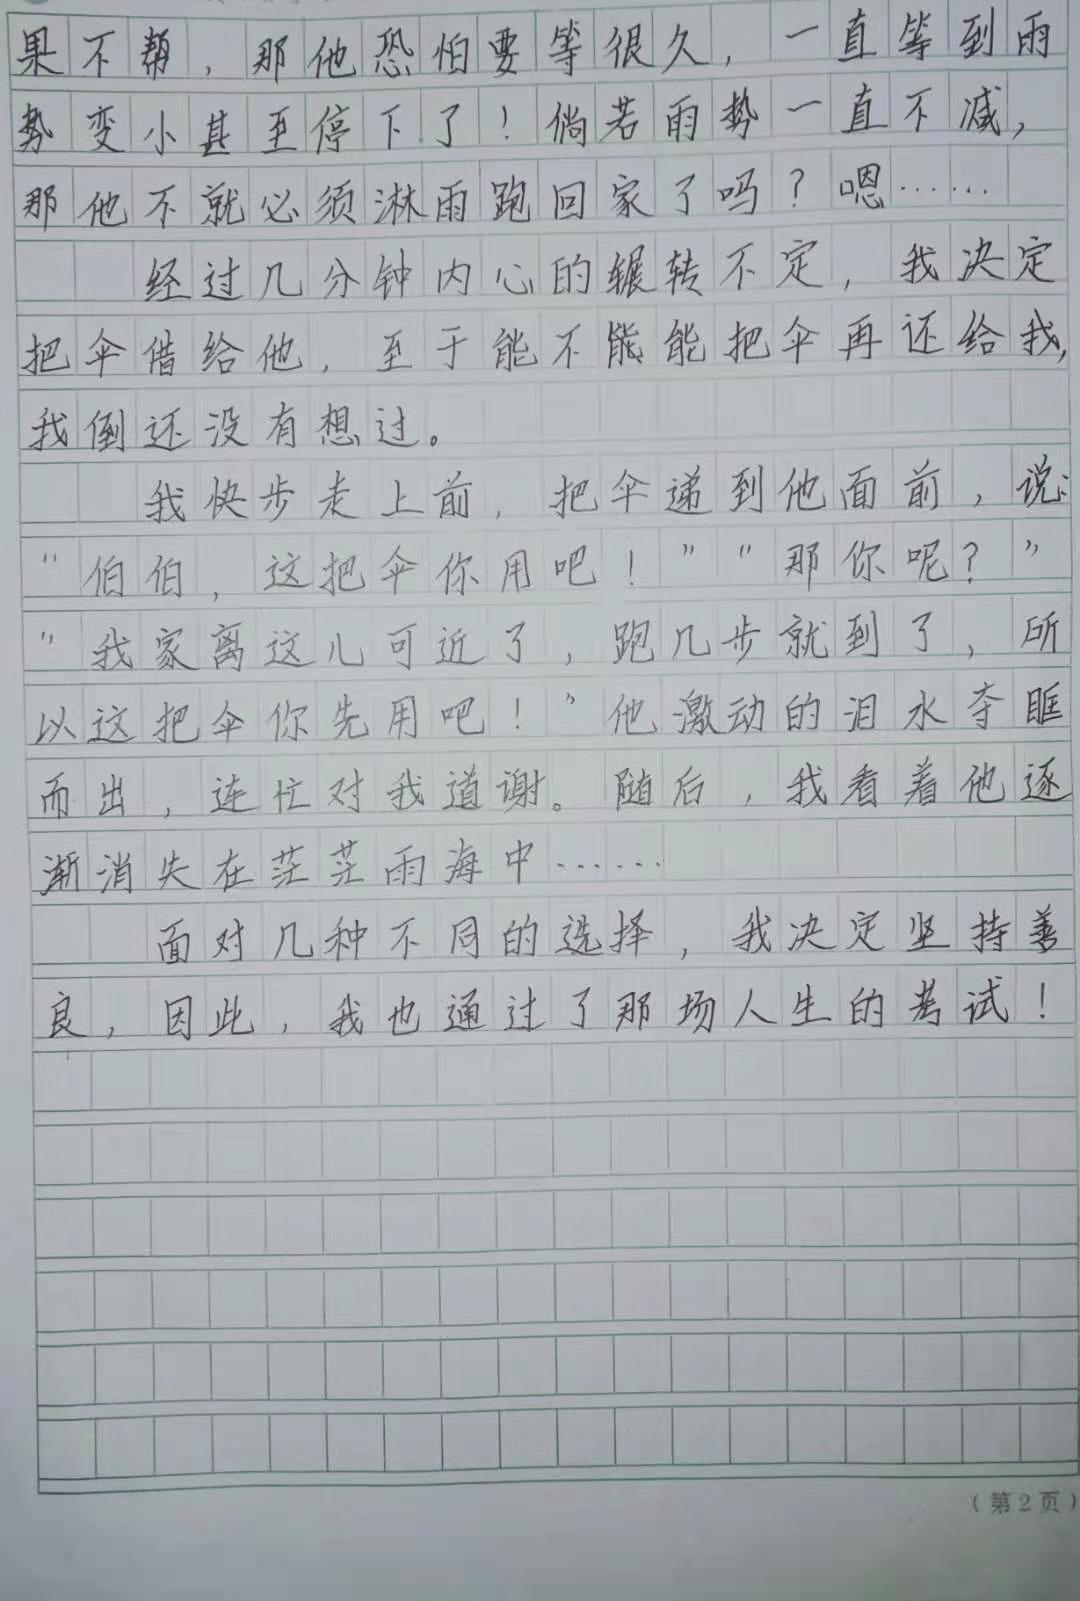 果不帮，那他恐怕要等很久，一直等到雨
势变小甚至停下了！倘若雨势一直不减，
那他不就必须淋雨跑回家了吗？嗯……
经过几分钟内心的辗转不定，我决定
把伞借给他，至于能不能能把伞再还给我，
我倒还没有想过。
我快步走上前，把伞递到他面前，说：
“伯伯，这把伞你用吧！”“那你呢？”
“我家离这儿可近了，跑几步就到了，所
以这把伞你先用吧！”他激动的泪水夺眶
而出，连忙对我道谢。随后，我看着他逐
渐消失在茫茫雨海中……
面对几种不同的选择，我决定坚持善
良，因此，我也通过了那场人生的考试！
（第2页）